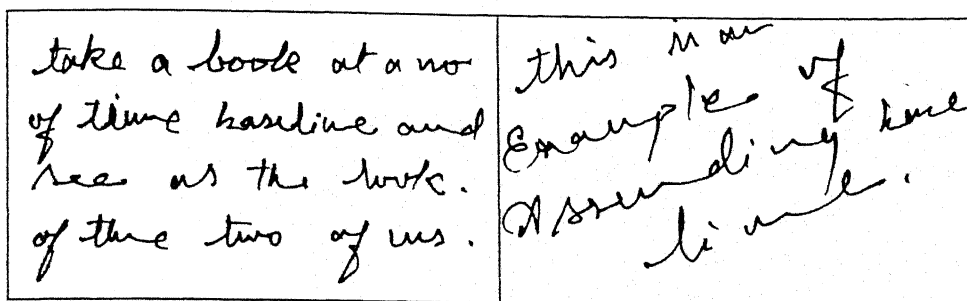 take a book at a no
of time baseline and
see as the book.
of the two of us.
this is an
Example of
Assending line
line.